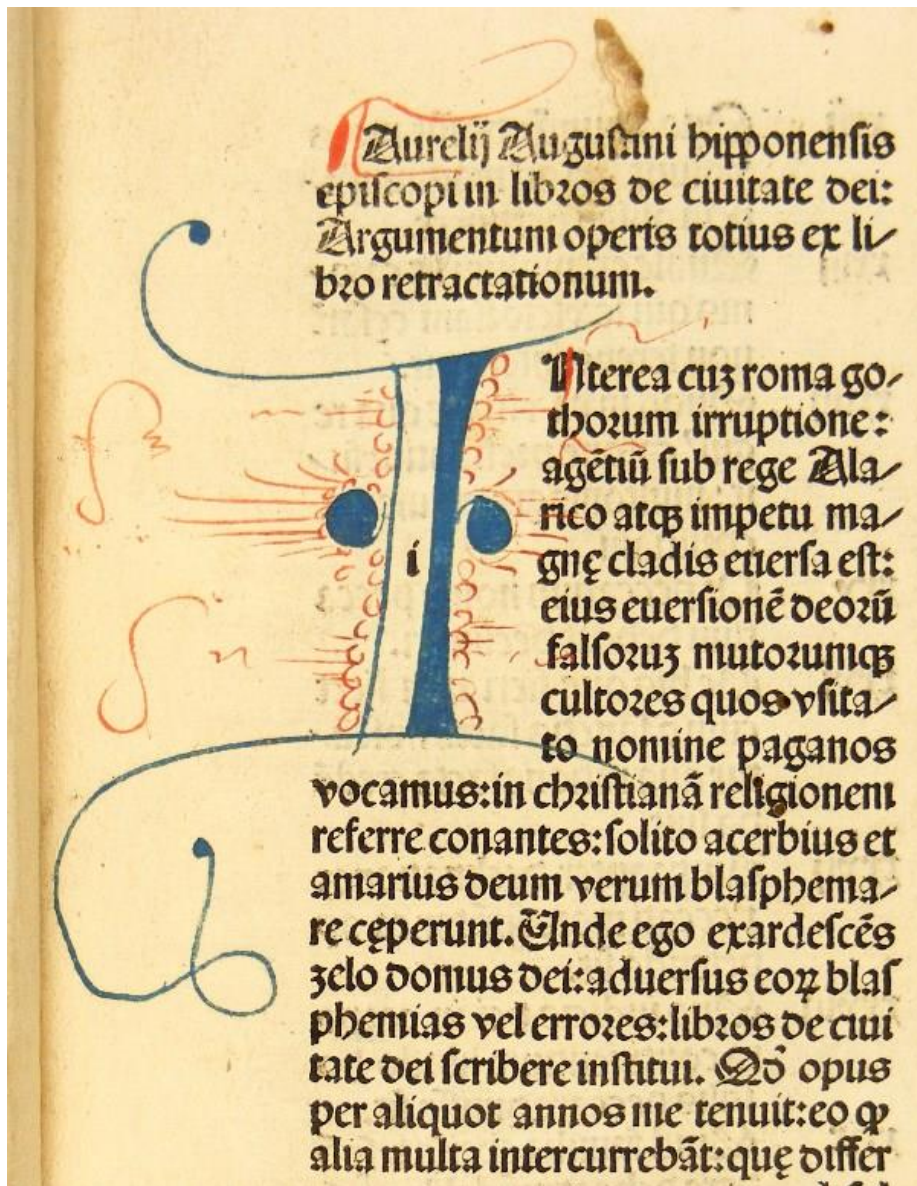 Aurelij Augustini hipponensis
episcopi in libros de ciuitate dei:
Argumentum operis totius ex li/
bro retractationum.
i
Nterea cuʒ roma go/
thorum irruptione:
agētiū sub rege Ala/
rico atqꝫ impetu ma/
gnę cladis euersa est:
eius euersionē deorū
falsoruʒ mutorumqꝫ
cultores quos vsita/
to nomine paganos
vocamus: in christianā religionem
referre conantes: solito acerbius et
amarius deum verum blasphema/
re cęperunt. Unde ego exardescēs
zelo domus dei: aduersus eoꝝ blas
phemias vel errores: libros de ciui
tate dei scribere institui. Qđ opus
per aliquot annos me tenuit: eo ꝙ
alia multa intercurrebāt: quę differ